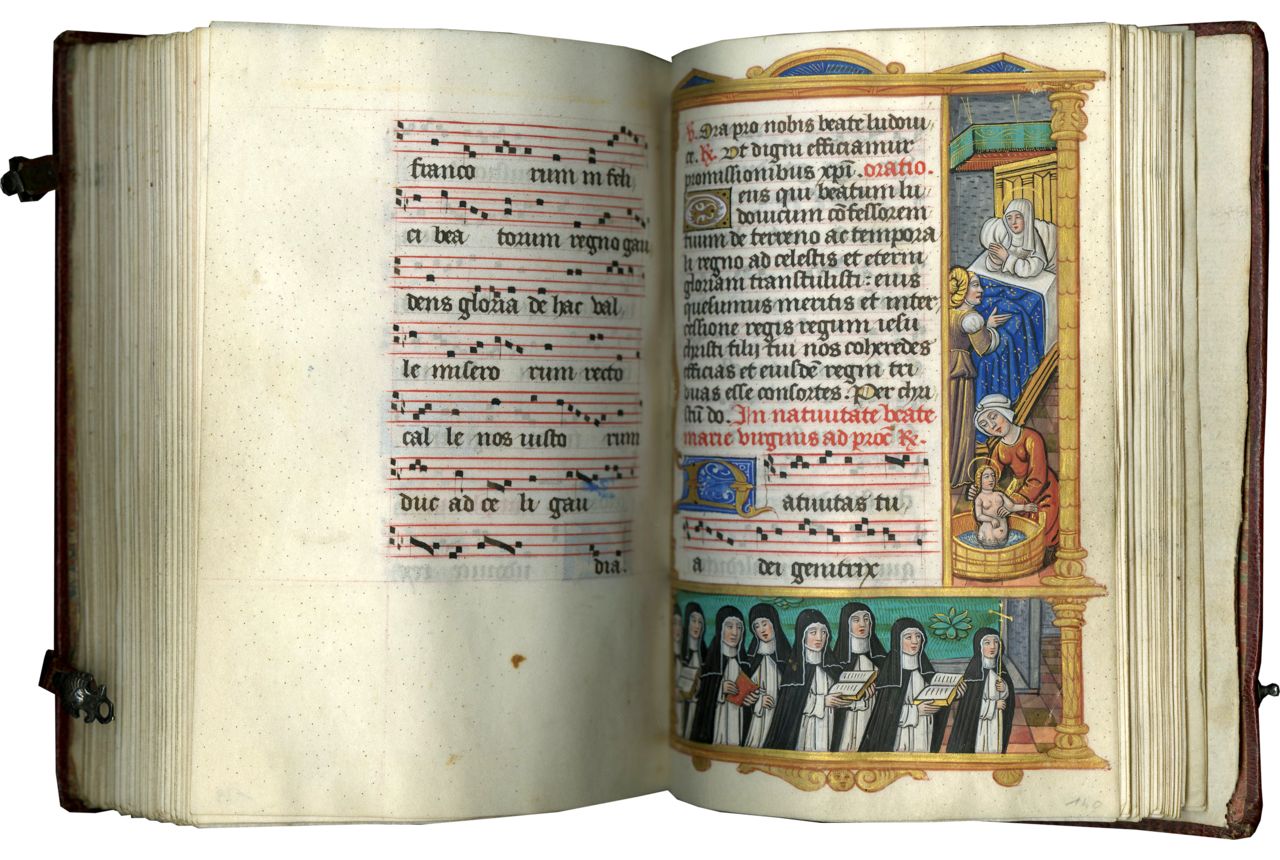 franco rum in feli
ci bea torum regno gau
dens gloria de hac val
le misero rum recto
cal le nos iusto rum
duc ad ce li gau
dia.
℣. Ora pro nobis beate ludoui
ce. ℟. Ut digni efficiamur
promissionibus xpi. oratio.
Deus qui beatum lu
douicum cōfessorem
tuum de terreno ac tempora
li regno ad celestis et eterni
gloriam transtulisti: eius
quesumus meritis et inter
cessione regis regum iesu
christi filij tui nos coheredes
efficias et eiusdē regni tri
buas esse consortes. Per chri
stū do. In natiuitate beate
marie virginis ad proc̄ ℟.
Natiuitas tu
a dei genitrix
140